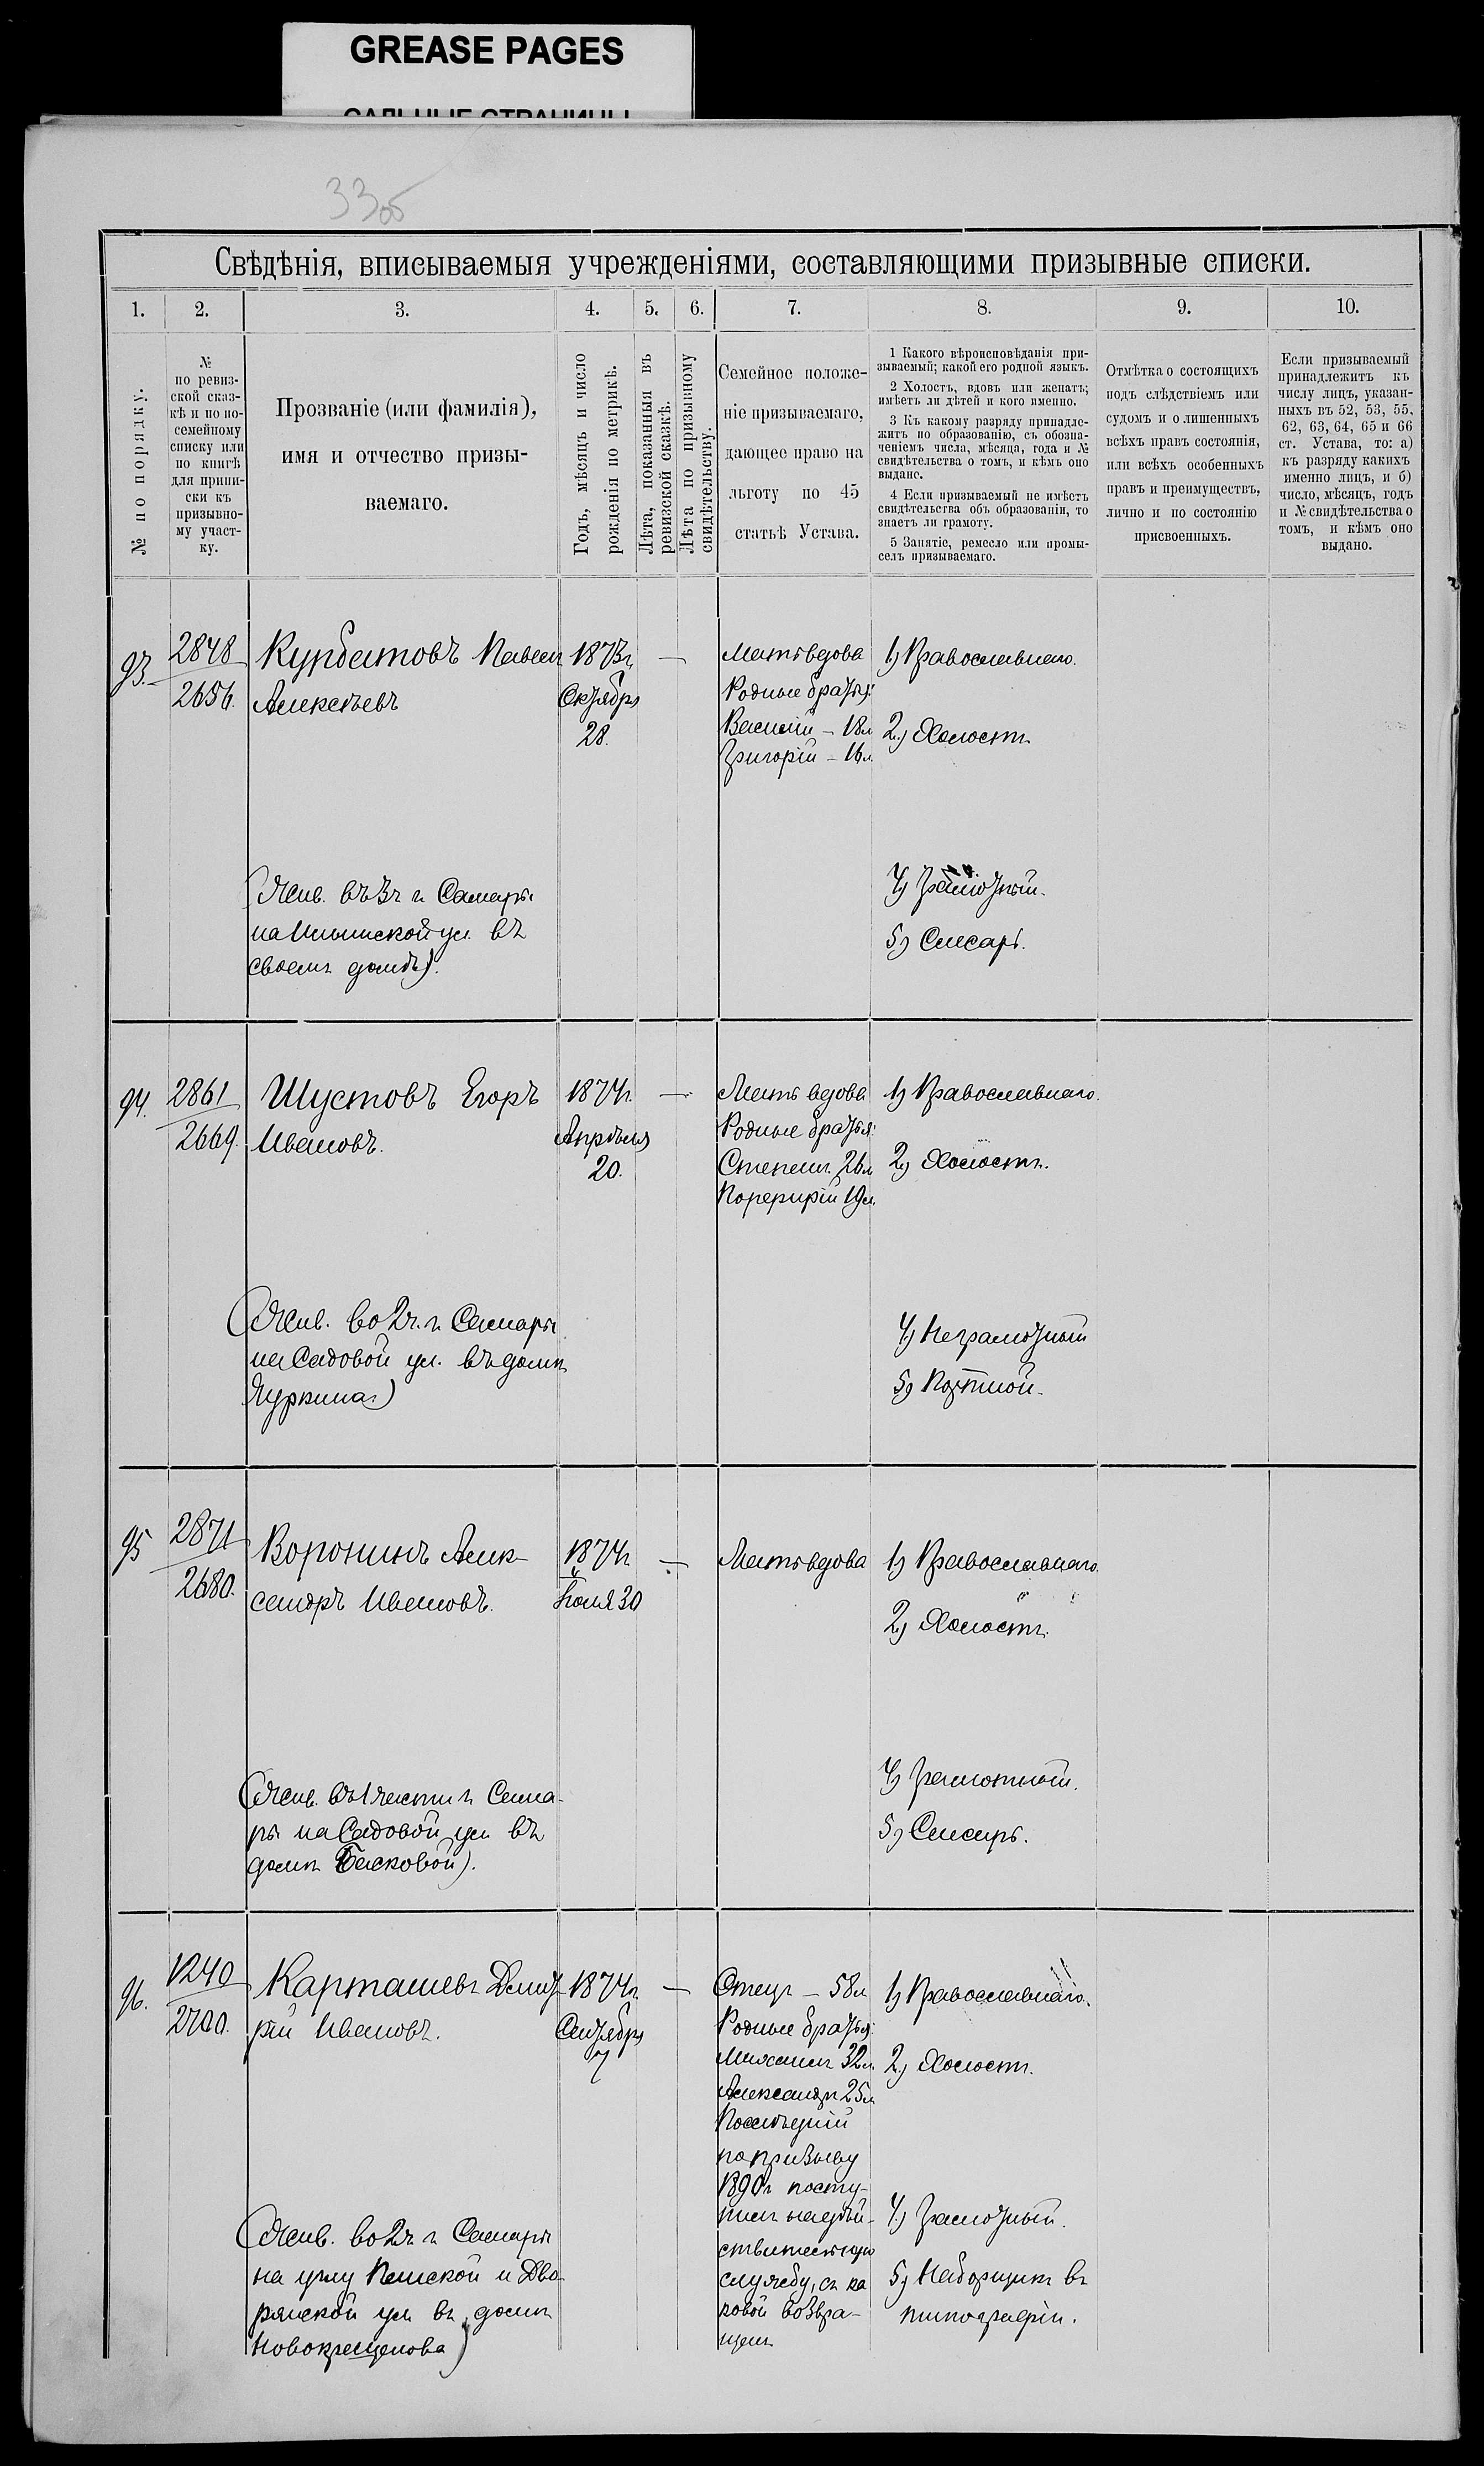 GREASE PAGES
САЛЬНЫЕ СТРАНИЦЫ
33об
Свѣдѣнія, вписываемыя учрежденіями, составляющими призывные списки.
1. 2. 3. 4. 5. 6. 7. 8. 9. 10.
№ по порядку.
№
по ревиз-
ской сказ-
кѣ и по по-
семейному
списку или
по книгѣ
для припи-
ски къ
призывно-
му участ-
ку.
Прозваніе (или фамилія),
имя и отчество призы-
ваемаго.
Годъ, мѣсяцъ и число
рожденія по метрикѣ.
Лѣта, показанныя въ
ревизской сказкѣ.
Лѣта по призывному
свидѣтельству.
Семейное положе-
ніе призываемаго,
дающее право на
льготу по 45
статьѣ Устава.
1 Какого вѣроисповѣданія при-
зываемый; какой его родной языкъ.
2 Холостъ, вдовъ или женатъ;
имѣетъ ли дѣтей и кого именно.
3 Къ какому разряду принадле-
житъ по образованію, съ обозна-
ченіемъ числа, мѣсяца, года и №
свидѣтельства о томъ, и кѣмъ оно
выдано.
4 Если призываемый не имѣетъ
свидѣтельства объ образованіи, то
знаетъ ли грамоту.
5 Занятіе, ремесло или промы-
селъ призываемаго.
Отмѣтка о состоящихъ
подъ слѣдствіемъ или
судомъ и о лишенныхъ
всѣхъ правъ состоянія,
или всѣхъ особенныхъ
правъ и преимуществъ,
лично и по состоянію
присвоенныхъ.
Если призываемый
принадлежитъ къ
числу лицъ, указан-
ныхъ въ 52, 53, 55,
62, 63, 64, 65 и 66
ст. Устава, то: а)
къ разряду какихъ
именно лицъ, и б)
число, мѣсяцъ, годъ
и № свидѣтельства о
томъ, и кѣмъ оно
выдано.
93.
2848
2656.
Курбатовъ Павелъ
Алексѣевъ
(Жив. въ 3ч г Самары
на Ильинской ул. въ
своемъ домѣ).
1873г
Октября
28.
—
Мать вдова
Родные братья:
Василій – 18л
Григорій – 16л.
1) Православнаго.
2.) Холостъ
4) Грамотный.
5) Слесарь.
94.
2861
2669.
Шустовъ Егоръ
Ивановъ.
(Жив. во 2ч. г. Самары
на Садовой ул. въ домѣ
Чуркина)
1874г.
Апрѣля
20.
—
Мать вдова
Родные братья:
Степанъ 26л
Порфирій 19л.
1) Православнаго.
2) Холостъ.
4) Неграмотный
5) Портной.
95
2871
2680.
Воронинъ Алек-
сандръ Ивановъ.
(Жив. въ 1 части г Сама-
ры на Садовой ул въ
домѣ Басковой).
1874г
Іюля 30
—
Мать вдова
1) Православнаго.
2) Холостъ.
4) Грамотный.
5) Слесарь.
96.
1240
2700.
Карташевъ Дмит-
рій Ивановъ.
(Жив. во 2ч г Самары
на углу Пенской и Дво-
рянской ул въ домѣ
Новокрещенова)
1874г.
Сентября
7
—
Отецъ – 58л
Родные братья:
Михаилъ 32л.
Александръ 25л
Послѣдній
по призыву
1890г посту-
пилъ на дѣй-
ствительную
службу, съ ка
ковой возвра-
щенъ
1) Православнаго.
2.) Холостъ.
4.) Грамотный.
5) Наборщикъ въ
типографіи.